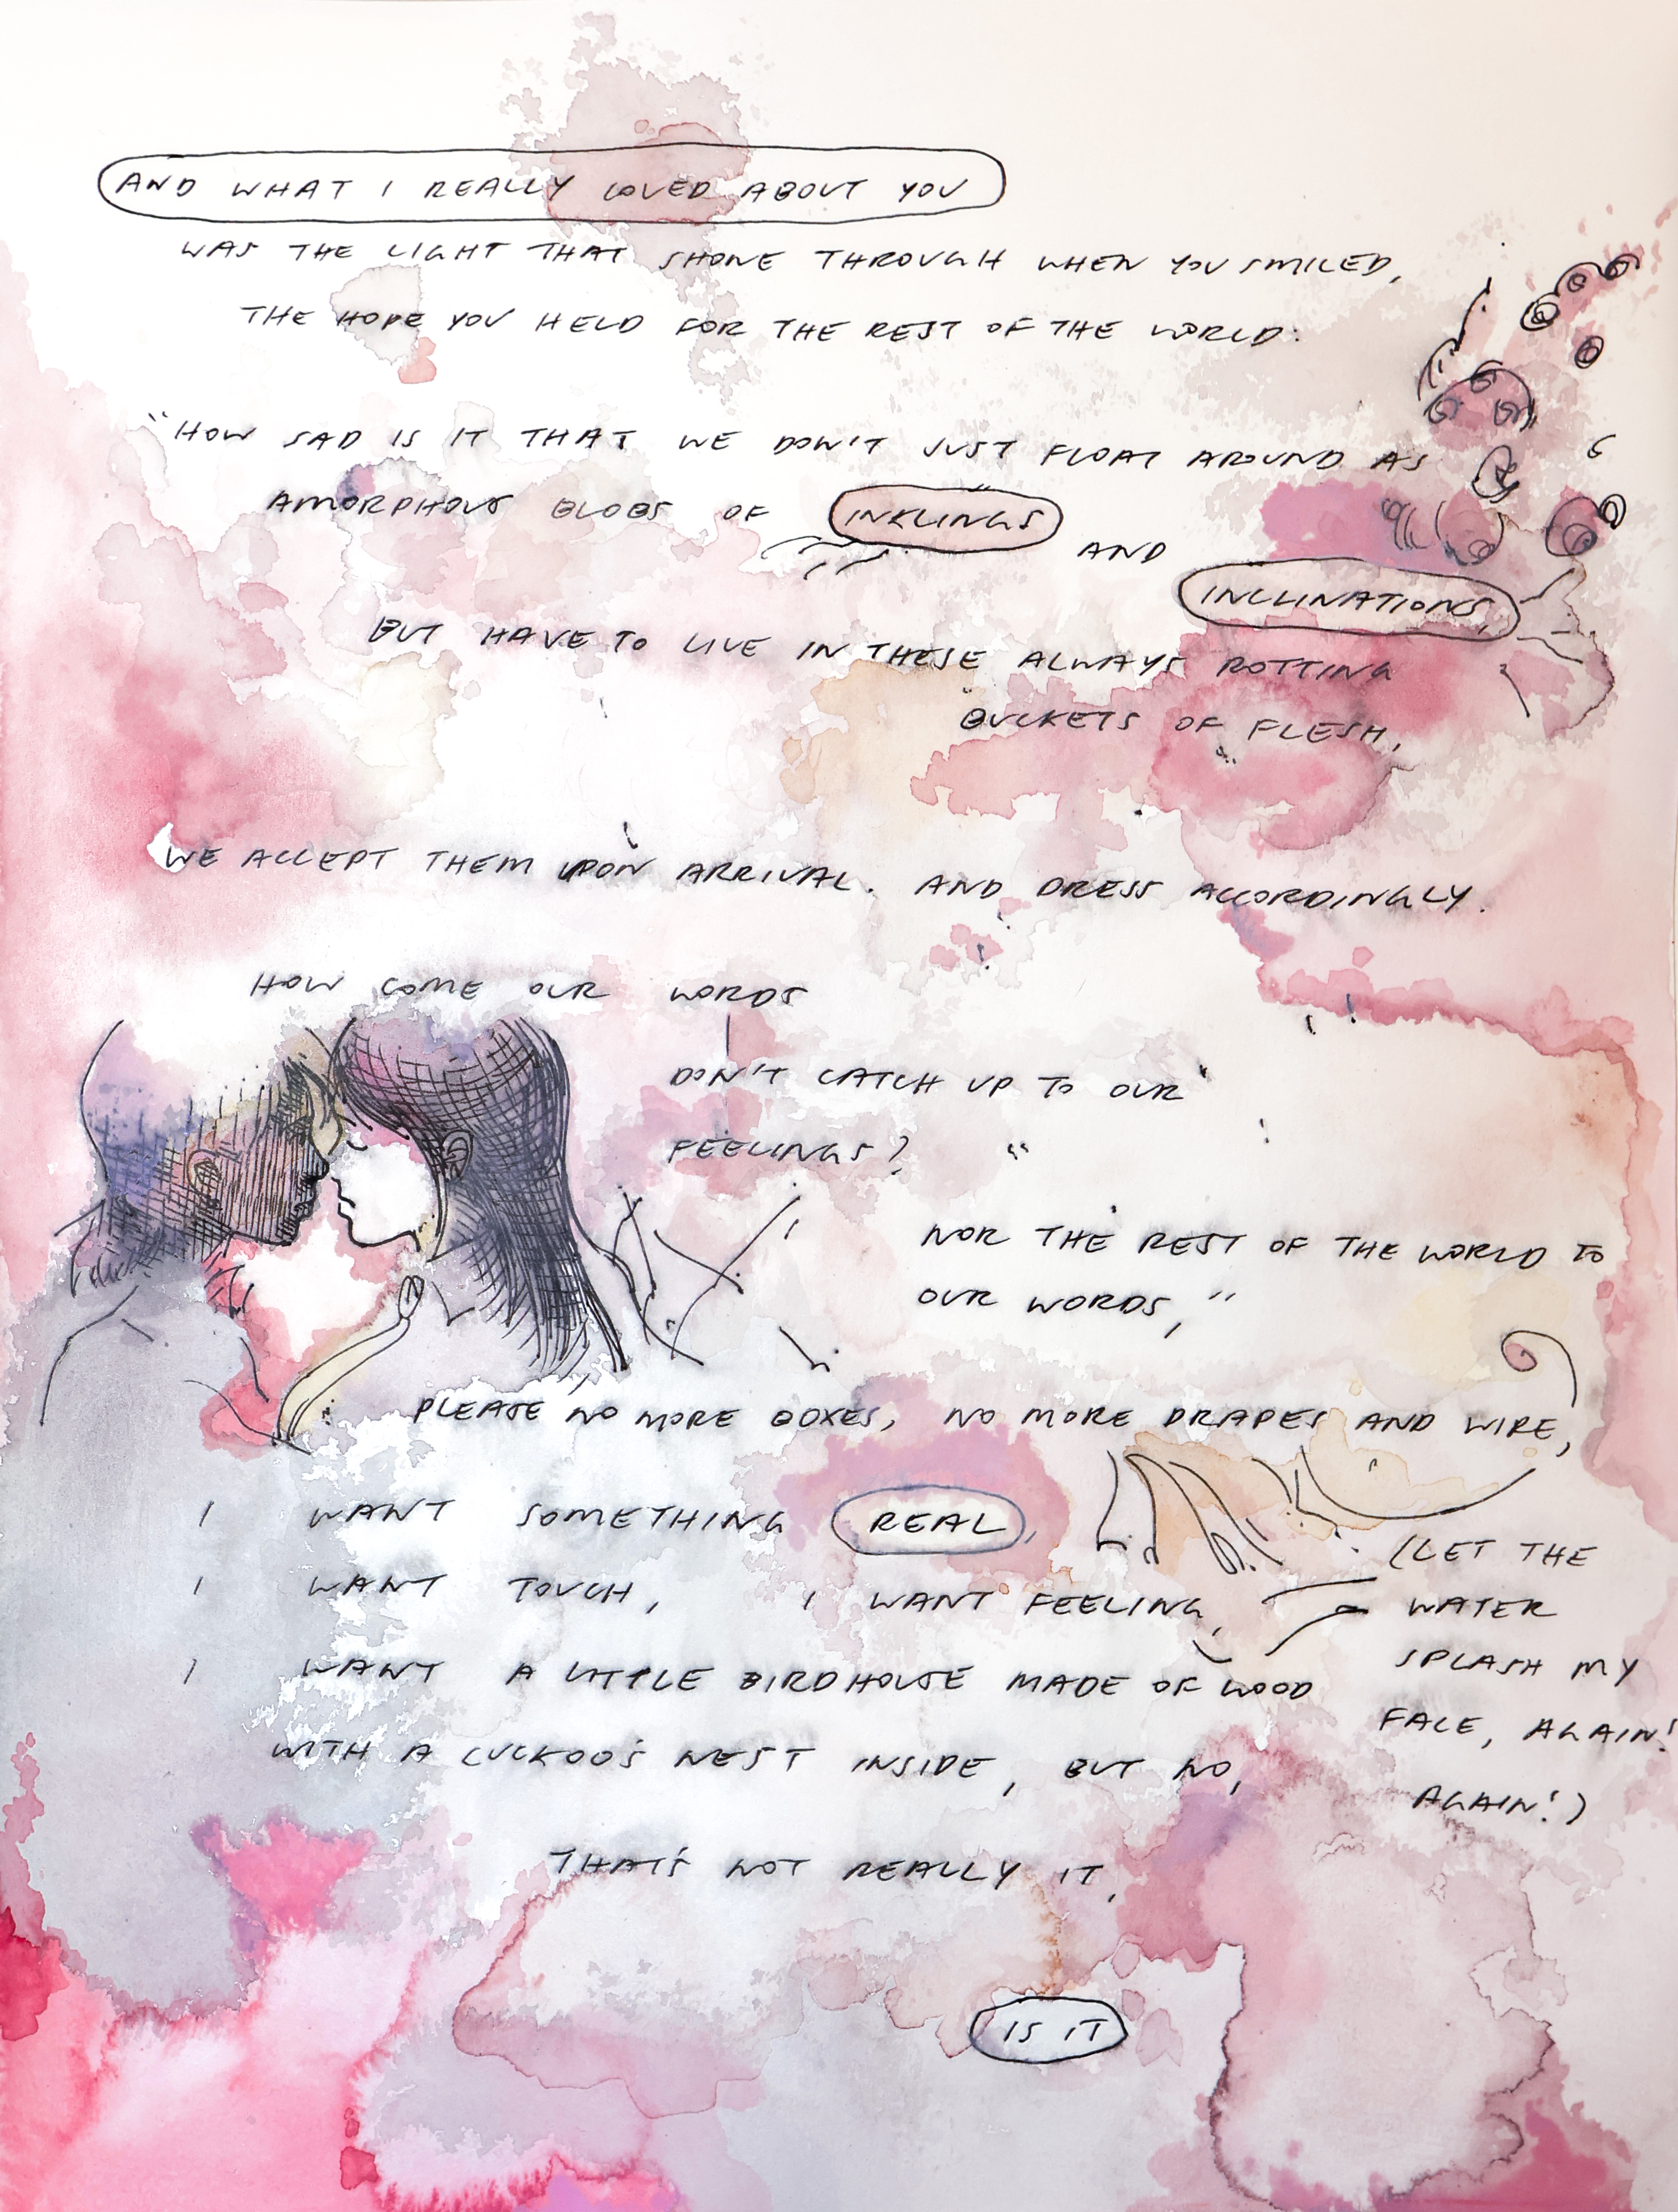 AND WHAT I REALLY LOVED ABOUT YOU
WAS THE LIGHT THAT SHONE THROUGH WHEN YOU SMILED,
THE HOPE YOU HELD FOR THE REST OF THE WORLD:
"HOW SAD IS IT THAT WE DON'T JUST FLOAT AROUND AS
AMORPHOUS BLOBS OF INKLINGS AND
INCLINATIONS,
BUT HAVE TO LIVE IN THESE ALWAYS ROTTING
BUCKETS OF FLESH,
WE ACCEPT THEM UPON ARRIVAL. AND DRESS ACCORDINGLY.
HOW COME OUR WORDS
DON'T CATCH UP TO OUR
FEELINGS? "
NOR THE REST OF THE WORLD TO
OUR WORDS,"
PLEASE NO MORE BOXES, NO MORE DRAPES AND WIRE,
I WANT SOMETHING REAL,
I WANT TOUCH, I WANT FEELING,
I WANT A LITTLE BIRDHOUSE MADE OF WOOD
WITH A CUCKOO'S NEST INSIDE, BUT NO,
(LET THE
WATER
SPLASH MY
FACE, AGAIN!
AGAIN!)
THAT'S NOT REALLY IT,
IS IT